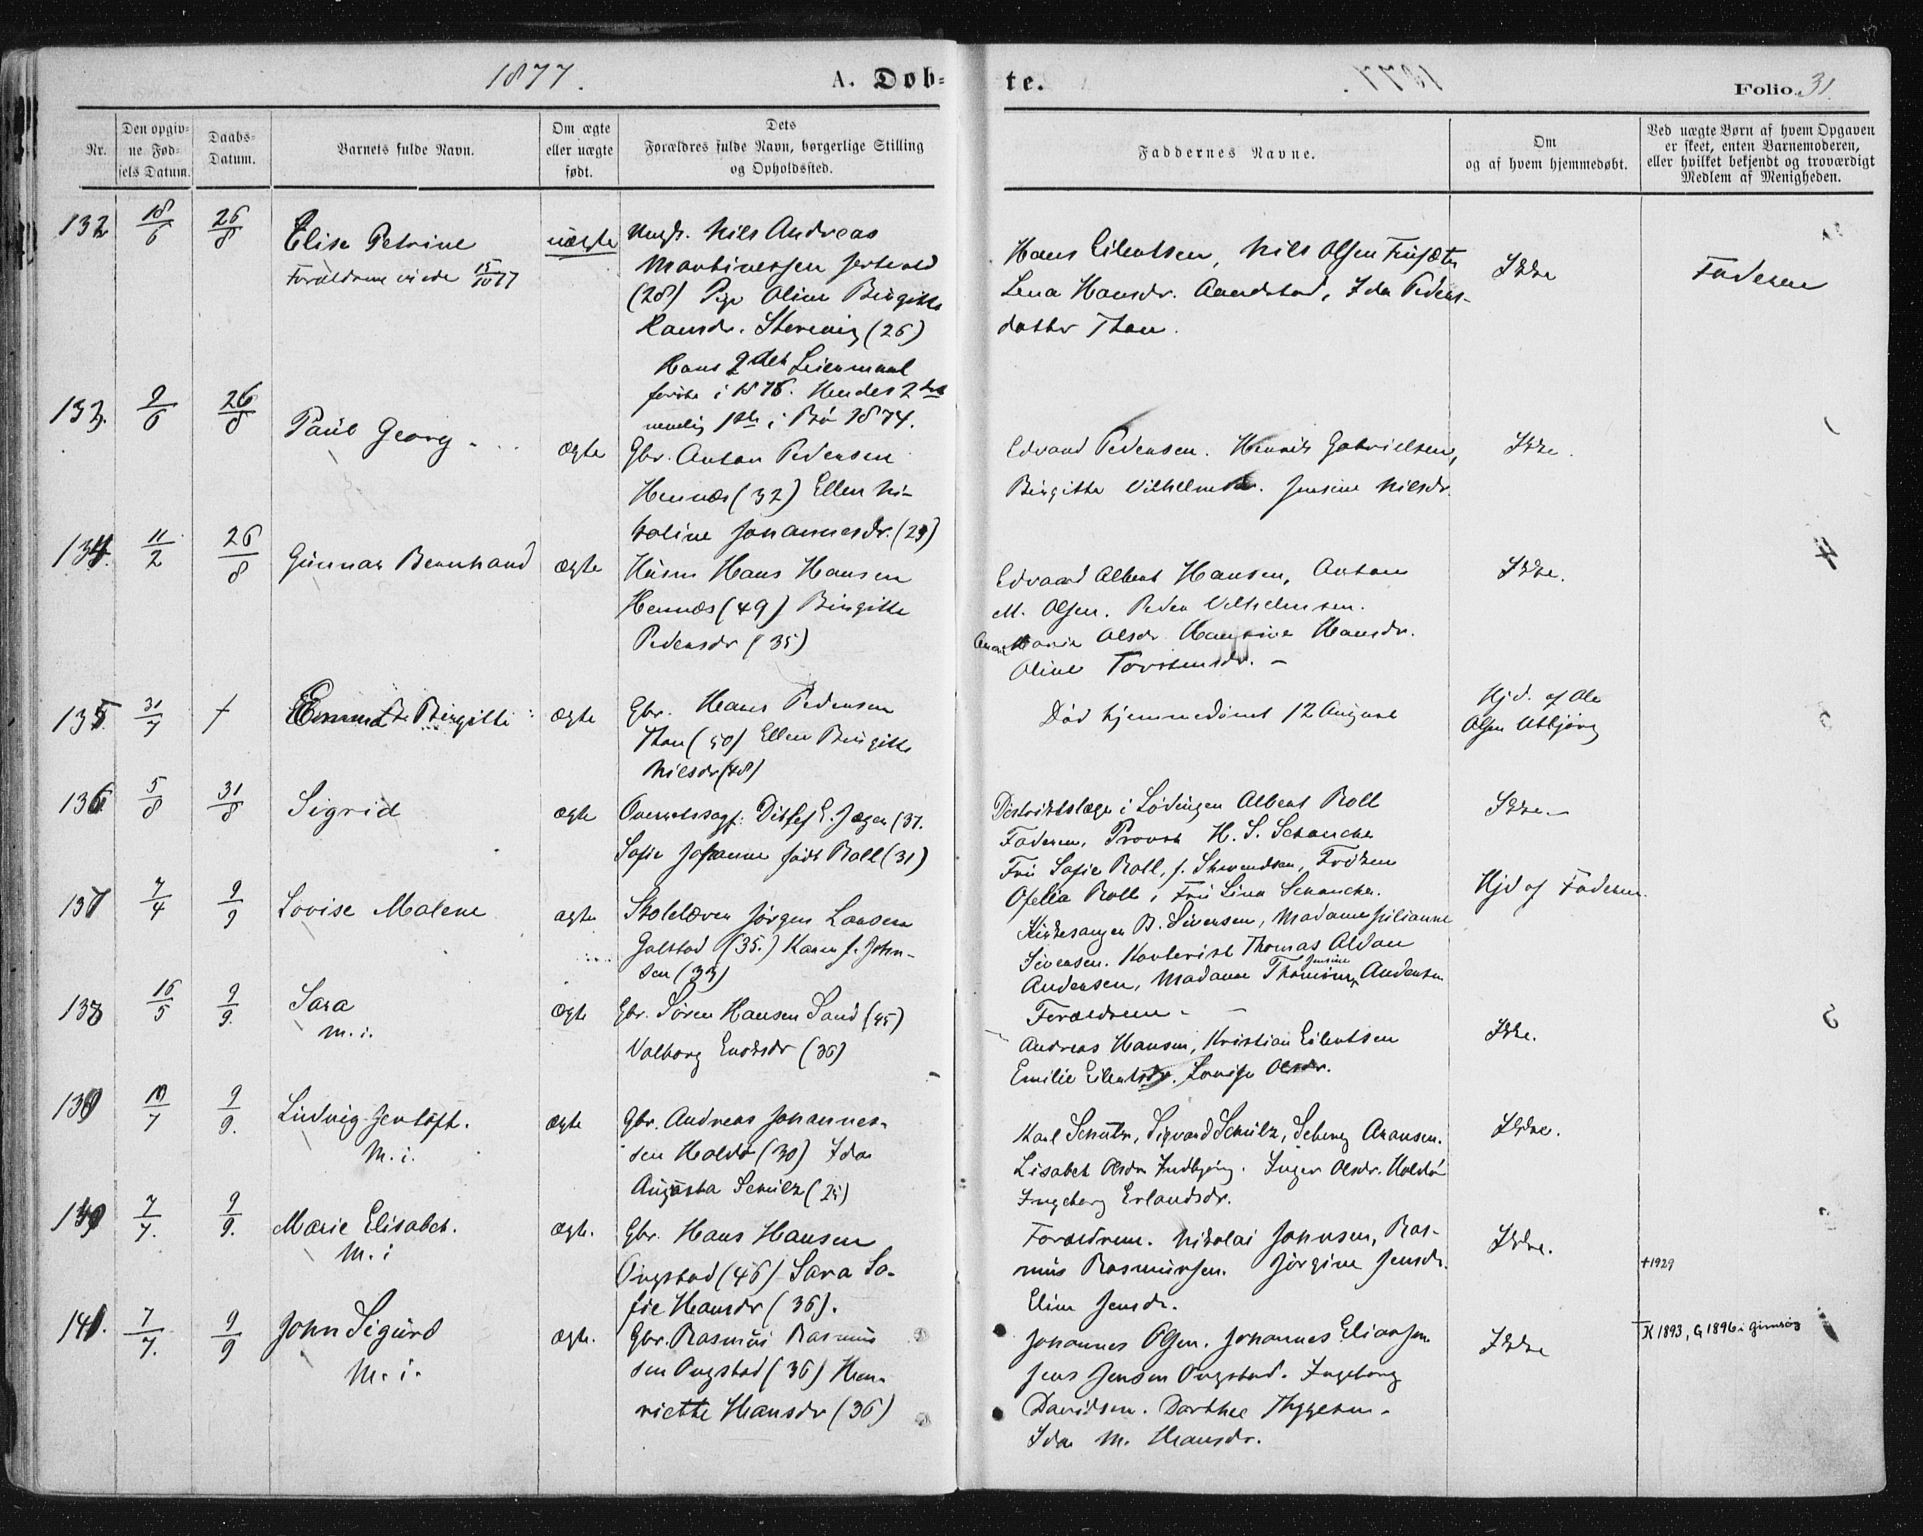 1877.
A. Døb-
te.
Folio 31
Nr.
Den opgiv-
ne Fød-
sels Datum.
Daabs-
Datum.
Barnets fulde Navn.
Om ægte
eller uægte
født.
Dets
Forældres fulde Navn, borgerlige Stilling
og Opholdssted.
Faddernes Navne.
Om
og af hvem hjemmedøbt.
Ved uægte Børn af hvem Opgaven
er skeet, enten Barnemoderen,
eller hvilket bekjendt og troværdigt
Medlem af Menigheden.
132
18/6
26/8
Elise Petrine
Forældrene viede 15/10 77
uægte
Ungk. Nils Andreas
Martinussen
(28) Pige Oline Birgitte
Hansdr. (26)
Hans 2det Leiermaal
første i 1876. Hendes 2det
nemlig 1ste i Bø 1874.
Hans Eilertsen, Nils Olsen
Lena Hansdr. Aandstad, Ida Peders-
datter Thon.
Ikke
Faderen
133.
9/6
26/8
Paul Georg
ægte
Gbr. Anton Pedersen
Hennæs (32) Ellen Ni-
koline Johannesdr. (29)
Edvard Pedersen. Henrik Gabrielsen,
Birgitte Vilhelmsdr. Jensine Nilsdr.
Ikke.
134.
11/2
26/8
Gunnar Bernhard
ægte
Husm Hans Hansen
Hennæs (49) Birgitte
Pedersdr (35)
Edvard Albert Hansen, Anton
M. Olsen. Peder Vilhelmsen.
Anne Marie Olsdr Hansine Hansdr.
Oline Torstensdr. -
Ikke.
4
135
31/7
†
Birgitte
ægte
Gbr. Hans Pedersen
Thon (50) Ellen Birgitte
Nilsdr (48)
Død hjemmedøbt 12 August
Hjd. af Ole
Olsen Utbjørg
136
5/8
31/8
Sigrid
ægte
Overretssagf. Ditlef E. Jæger (37.
Sofie Johanne født Roll (31)
Distriktslæge i Lødingen Albert Roll
Faderen, Provst H. S. Schanche
Fru Sofie Roll, f. Skvendsen, Frøken
Ofelia Roll, Fru Lina Schanche.
Ikke -
137
7/4
9/9
Lovise Malene
ægte
Skolelærer Jørgen Larsen
Galstad (35.) Karen f. John-
sen (33)
Kirkesanger B. Siversen, Madame Julianne
Sivensen. Kontorist Thomas Aldan
Andersen, Madame Thomine Jensine Andersen
Forældrene -
Hjd af Faderen
138
16/5
9/9.
Sara
m. i.
ægte
Gbr. Søren Hansen Sand (45)
Valborg Enoksdr (36)
Andreas Hansen, Kristian Eilertsen
Emilie Eilertsdr. Lovise Olsdr.
Ikke.
139
10/7
9/9.
Ludvig Jentoft.
M. i.
ægte
Gbr. Andreas Johannes-
sen Holdø (30) Ida
Augusta Schulz (25)
Karl Schulz, Sigvard Schulz, Schevig Aransen.
Lisabet Olsdr Indbjørg. Inger Olsdr. Holdø
Ingeborg Erlandsdr.
Ikke.
140
7/7.
9/9.
Marie Elisabet.
M. i
ægte.
Gbr. Hans Hansen
Ongstad (46) Sara So-
fie Hansdr (36).
Forældrene. Nikolai Johnsen, Ras-
mus Rasmussen. Jørgine Jensdr.
Eline Jensdr.
Ikke.
+1929
141.
7/7.
9/9
John Sigurd
M. i.
ægte.
Gbr. Rasmus Rasmus
sen Ongstad (36) Hen-
riette Hansdr (36)
Johannes Olsen. Johannes Eliassen
Jens Jensen Ongstad. Ingeborg
Davidsen. Dorthee Thygesen.
Ida M. Hansdr.
Ikke
K 1893, G 1896 i Gimsøy